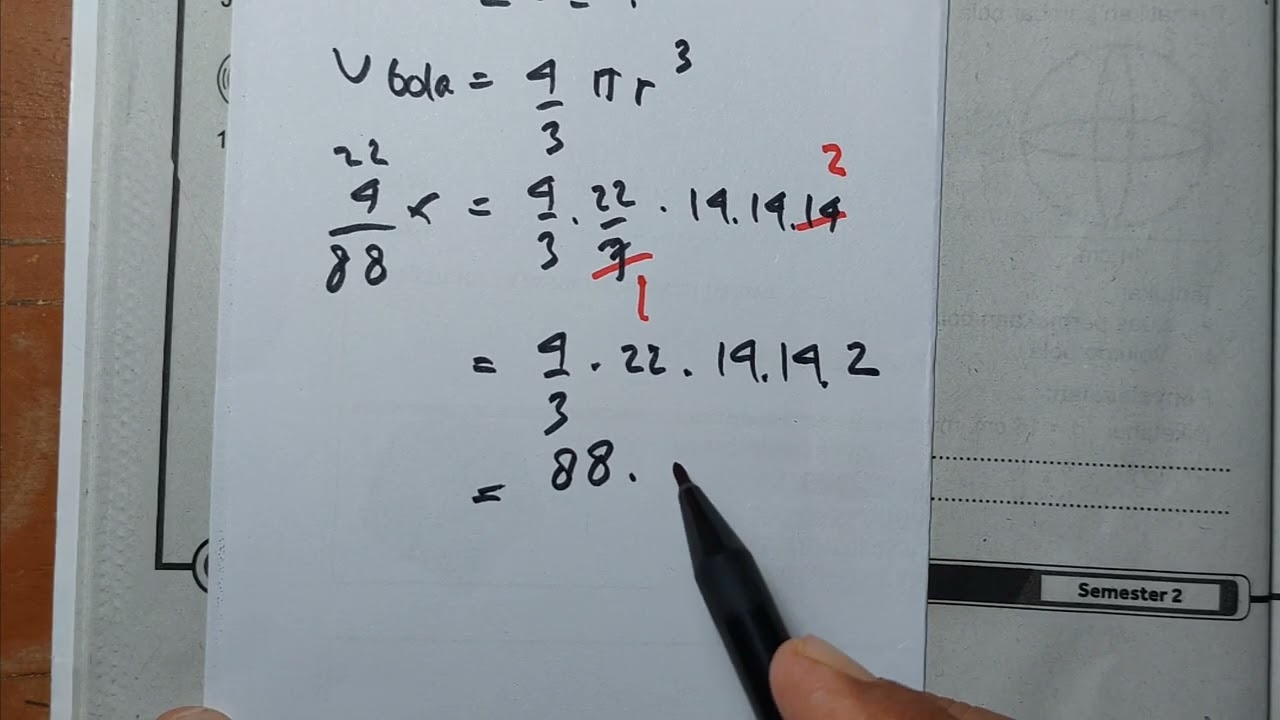 V bola = 4/3 π r³
22
4 x
88
= 4/3 . 22/7 . 14.14.14
2
1
= 4/3 . 22 . 14.14.2
= 88 .
Semester 2